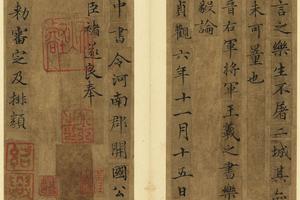 言之樂生不屠二城其亦
未可量也
晉右軍將軍王羲之書樂
毅論
貞觀六年十一月十五日
中書令河南郡開國公
臣褚遂良奉
勅審定及排類